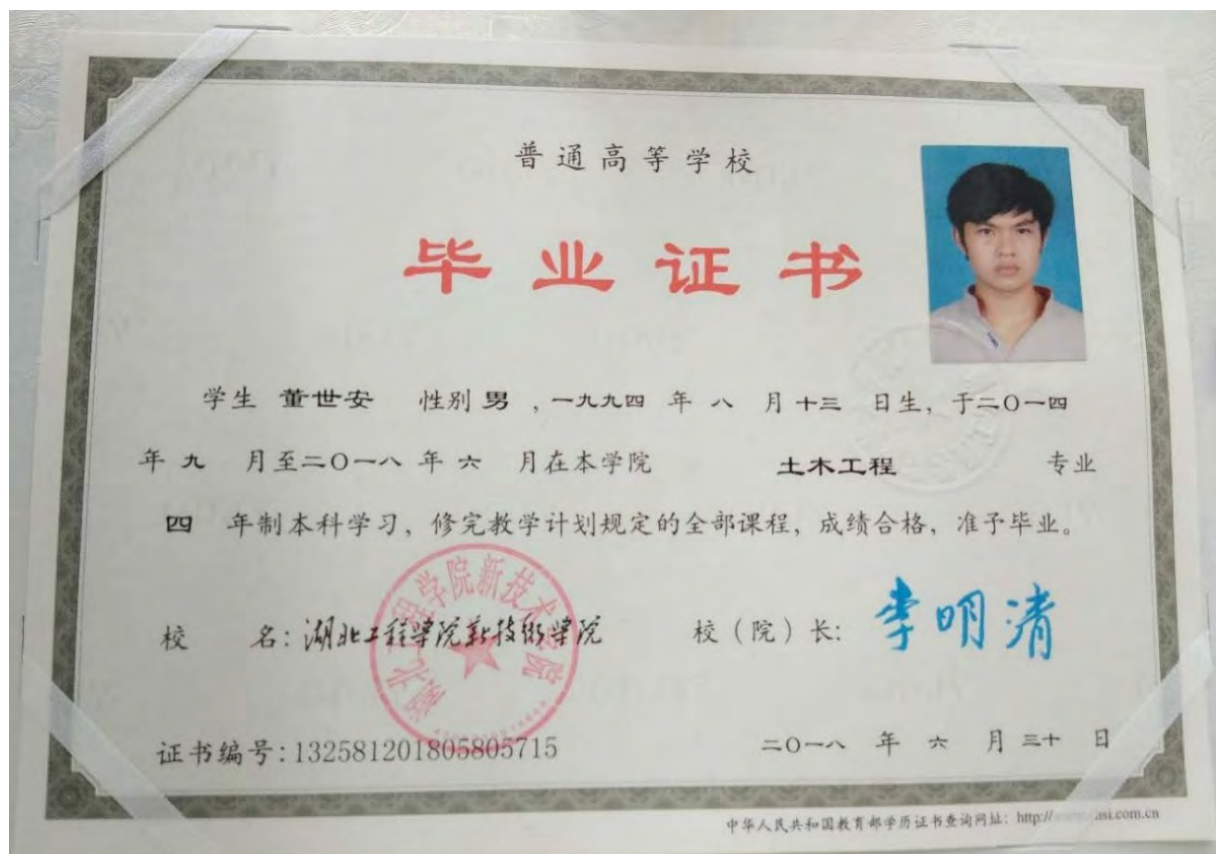 普通高等学校
毕业证书
学生 董世安 性别 男 ，一九九四 年 八 月 十三 日生，于二〇一四
年 九 月至二〇一八 年 六 月在本学院 土木工程 专业
四 年制本科学习，修完教学计划规定的全部课程，成绩合格，准予毕业。
校 名：湖北工程学院新技术学院 校（院）长：李明清
湖北工程学院新技术学院
证书编号：132581201805805715 二〇一八 年 六 月 三十 日
中华人民共和国教育部学历证书查询网址：http://